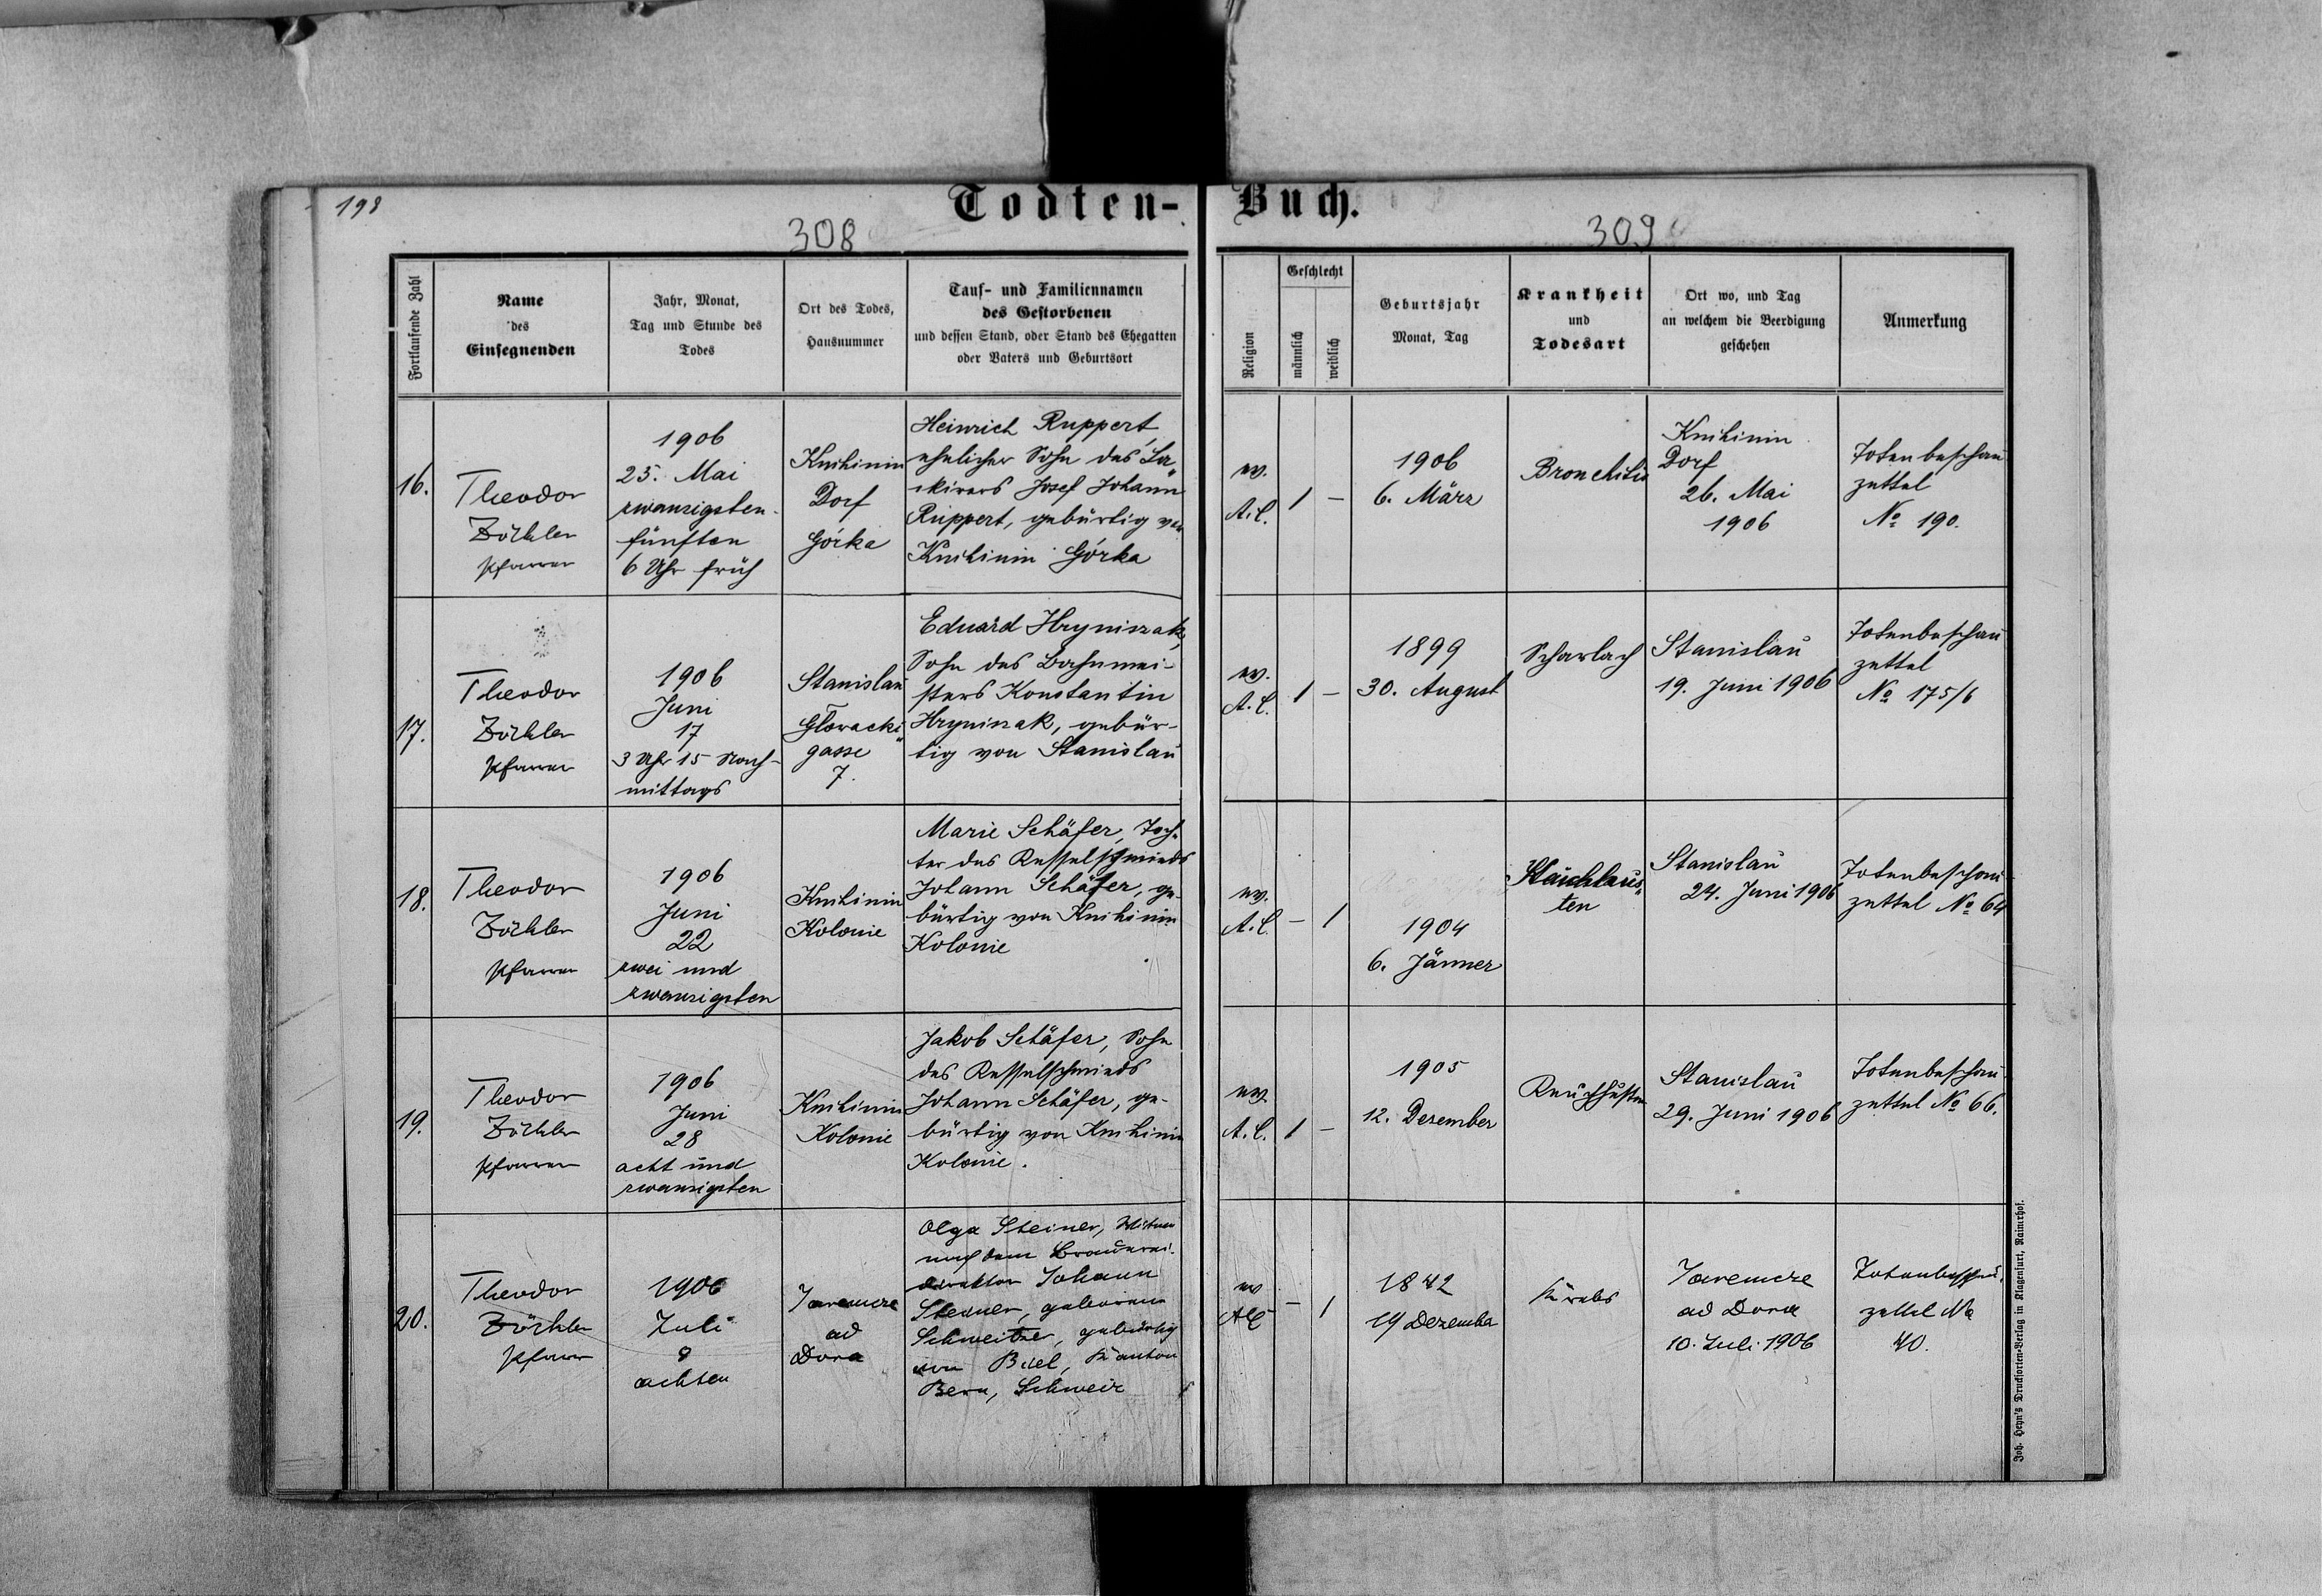 198
Todten-Buch.
308
309
Fortlaufende Zahl
Name
des
Einsegnenden
Jahr, Monat,
Tag und Stunde des
Todes
Ort des Todes,
Hausnummer
Tauf- und Familiennamen
des Gestorbenen
und dessen Stand, oder Stand des Ehegatten
oder Vaters und Geburtsort
Religion
Geschlecht
männlich
weiblich
Geburtsjahr
Monat, Tag
Krankheit
und
Todesart
Ort wo, und Tag
an welchem die Beerdigung
geschehen
Anmerkung
16.
Theodor
Zöckler
Pfarrer
1906
25. Mai
zwanzigsten-
fünften
6 Uhr früh
Knihinin
Dorf
Górka
Heinrich Ruppert,
ehelicher Sohn des La„
ckirers Josef Johann
Ruppert, gebürtig von
Knihinin Górka
ev.
A.C.
1
—
1906
6. März
Bronchitis
Knihinin
Dorf
26. Mai
1906
Totenbeschau
zettel
№ 190.
17.
Theodor
Zöckler
Pfarrer
1906
Juni
17
3 Uhr 15 Nach-
mittags
Stanislau
Głowacki„
gasse
7.
Eduard Hryniszak,
Sohn des Bahnmei-
sters Konstantin
Hryniszak, gebür-
tig von Stanislau
ev.
A.C.
1
—
1899
30. August
Scharlach
Stanislau
19. Juni 1906
Totenbeschau
zettel
№ 175/6
18.
Theodor
Zöckler
Pfarrer
1906
Juni
22
zwei und
zwanzigsten
Knihinin
Kolonie
Marie Schäfer, Toch„
ter des Kesselschmieds
Johann Schäfer, ge-
bürtig von Knihinin
Kolonie
ev.
A.C.
—
1
1904
6. Jänner
ten
Stanislau
24. Juni 1906
Totenbeschau
zettel № 64
19.
Theodor
Zöckler
Pfarrer
1906
Juni
28
acht und
zwanzigsten
Knihinin
Kolonie
Jakob Schäfer, Sohn
des Kesselschmieds
Johann Schäfer, ge-
bürtig von Knihinin
Kolonie.
ev.
A.C.
1
—
1905
12. Dezember
Keuchhusten
Stanislau
29. Juni 1906
Totenbeschau
zettel № 66.
20.
Theodor
Zöckler
Pfarrer
1906
Juli
8
achten
Jaremcze
ad
Dora
Olga Steiner, Witwe
nach dem Brauerei-
direktor Johann
Steiner, geborene
Schweitzer, gebürtig
von Biel, Kanton
Bern, Schweiz
ev
AC
—
1
1842
19 Dezember
Krebs
Jaremcze
ad Dora
10. Juli 1906
Totenbeschau-
zettel №
40.
Joh. Heyn's Drucksorten-Verlag in Klagenfurt, Rainerhof.